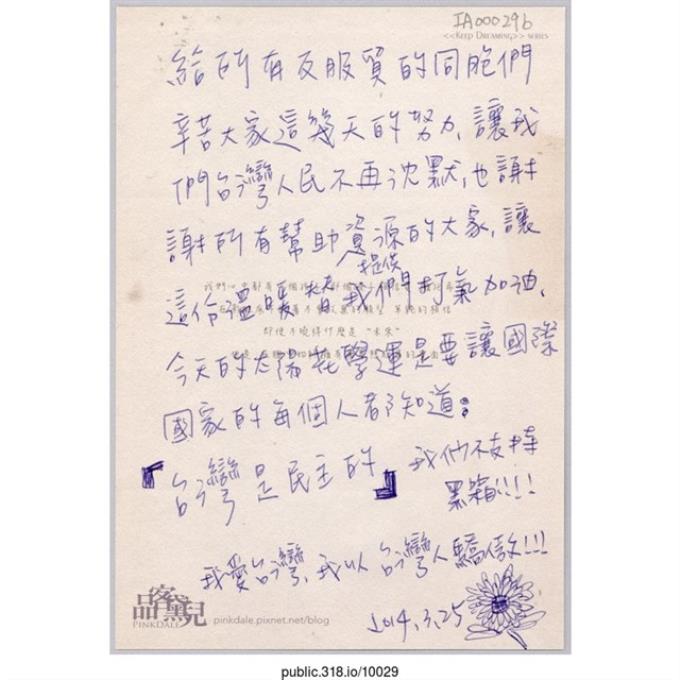 IA000296
<<KEEP DREAMING>> SERIES
給所有反服貿的同胞們
辛苦大家這幾天的努力、讓我
們台灣人民不再沈默,也謝
謝所有幫助資源的大家,讓
提供
這份溫暖替我們打氣加油、
今天的太陽花學運是要讓國際
國家的每個人都知道:
『台灣是民主的』我們不支持
黑箱!!!!
我愛台灣,我以台灣人驕傲!!!
2014.3.25
品客黛兒
PINKDALE
pinkdale.pixnet.net/blog
public.318.io/10029